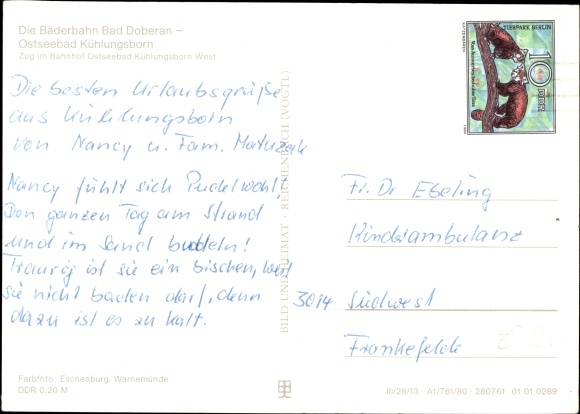 Die Bäderbahn Bad Doberan –
Ostseebad Kühlungsborn
Zug im Bahnhof Ostseebad Kühlungsborn West
TIERPARK BERLIN
10
DDR
Die besten Urlaubsgrüße
aus Kühlungsborn
von Nancy u. Fam. Matuzak
Nancy fühlt sich Pudelwohl!
Den ganzen Tag am Strand
und im Sand buddeln!
Traurig ist sie ein bischen, weil
sie nicht baden darf, denn
dazu ist es zu kalt.
BILD UND HEIMAT · REICHENBACH (VOGTL)
Fr. Dr Ebeling
Kinderambulanz
3014 Südwest
Frankefelde
Farbfoto: Eschenburg, Warnemünde
DDR 0,20 M
III/26/13 · A1/761/80 · 280761 01 01 0289